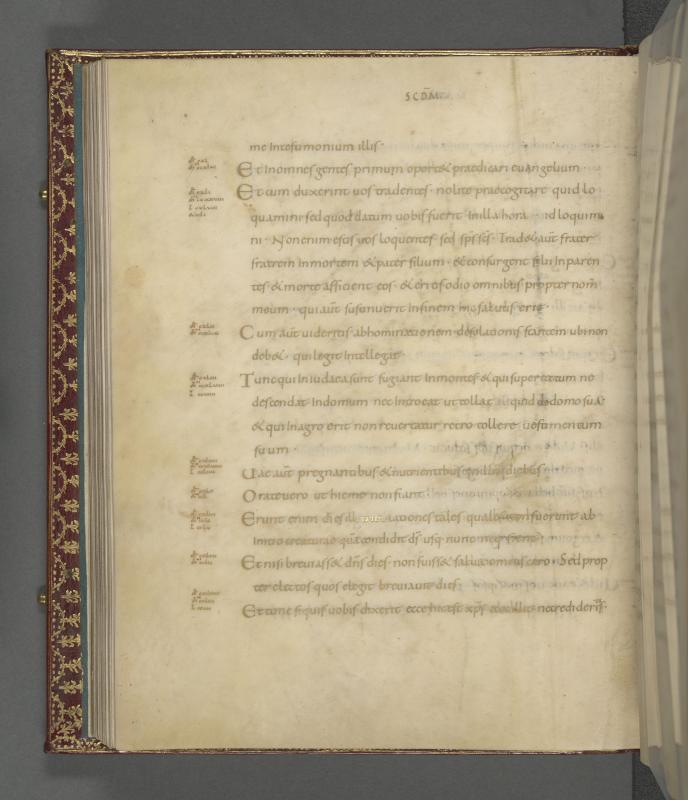 SCDM
me Intestimonium illis·
Et Inomnes gentes primum oport& praedicari euangelium·
Et cum duxerint uos tradentes· nolite praecogitare quid lo
quamini sed quod datum uobis fuerit Inilla hora id loquimi
ni· Non enim estis uos loquentes· sed sps scs· Trad& aut frater
fratrem Inmortem &pater filium· &consurgent filii Inparen
tes· &morte afficient eos· &eritis odio omnibus propter nom
meum· qui aut sustinuerit Infinem hic saluus erit·
Cum aut uideritis abhominationem desolationis stantem ubi non
deb&· qui legit Intellegat
Tunc qui In iudaea sunt fugiant Inmontes & qui super tectum ne
descendat Indomum nec Introeat ut tollat quid dedomo sua
& qui Inagro erit non reuertatur retro tollere uestimentum
suum·
Uae aut pregnantibus &nutrientibus Inillis diebus
Orate uero ut hieme non fiant
Erunt enim dies ill tribulationes tales quales non fuerunt ab
Initio creaturae qua condidit ds usq nunc neq fient
Et nisi breuiass& dns dies· non fuiss& salua omnis caro· Sed prop
ter electos quos elegit breuiauit dies
Et tunc si quis uobis dixerit ecce hic est xps ecce illic necredideritis·